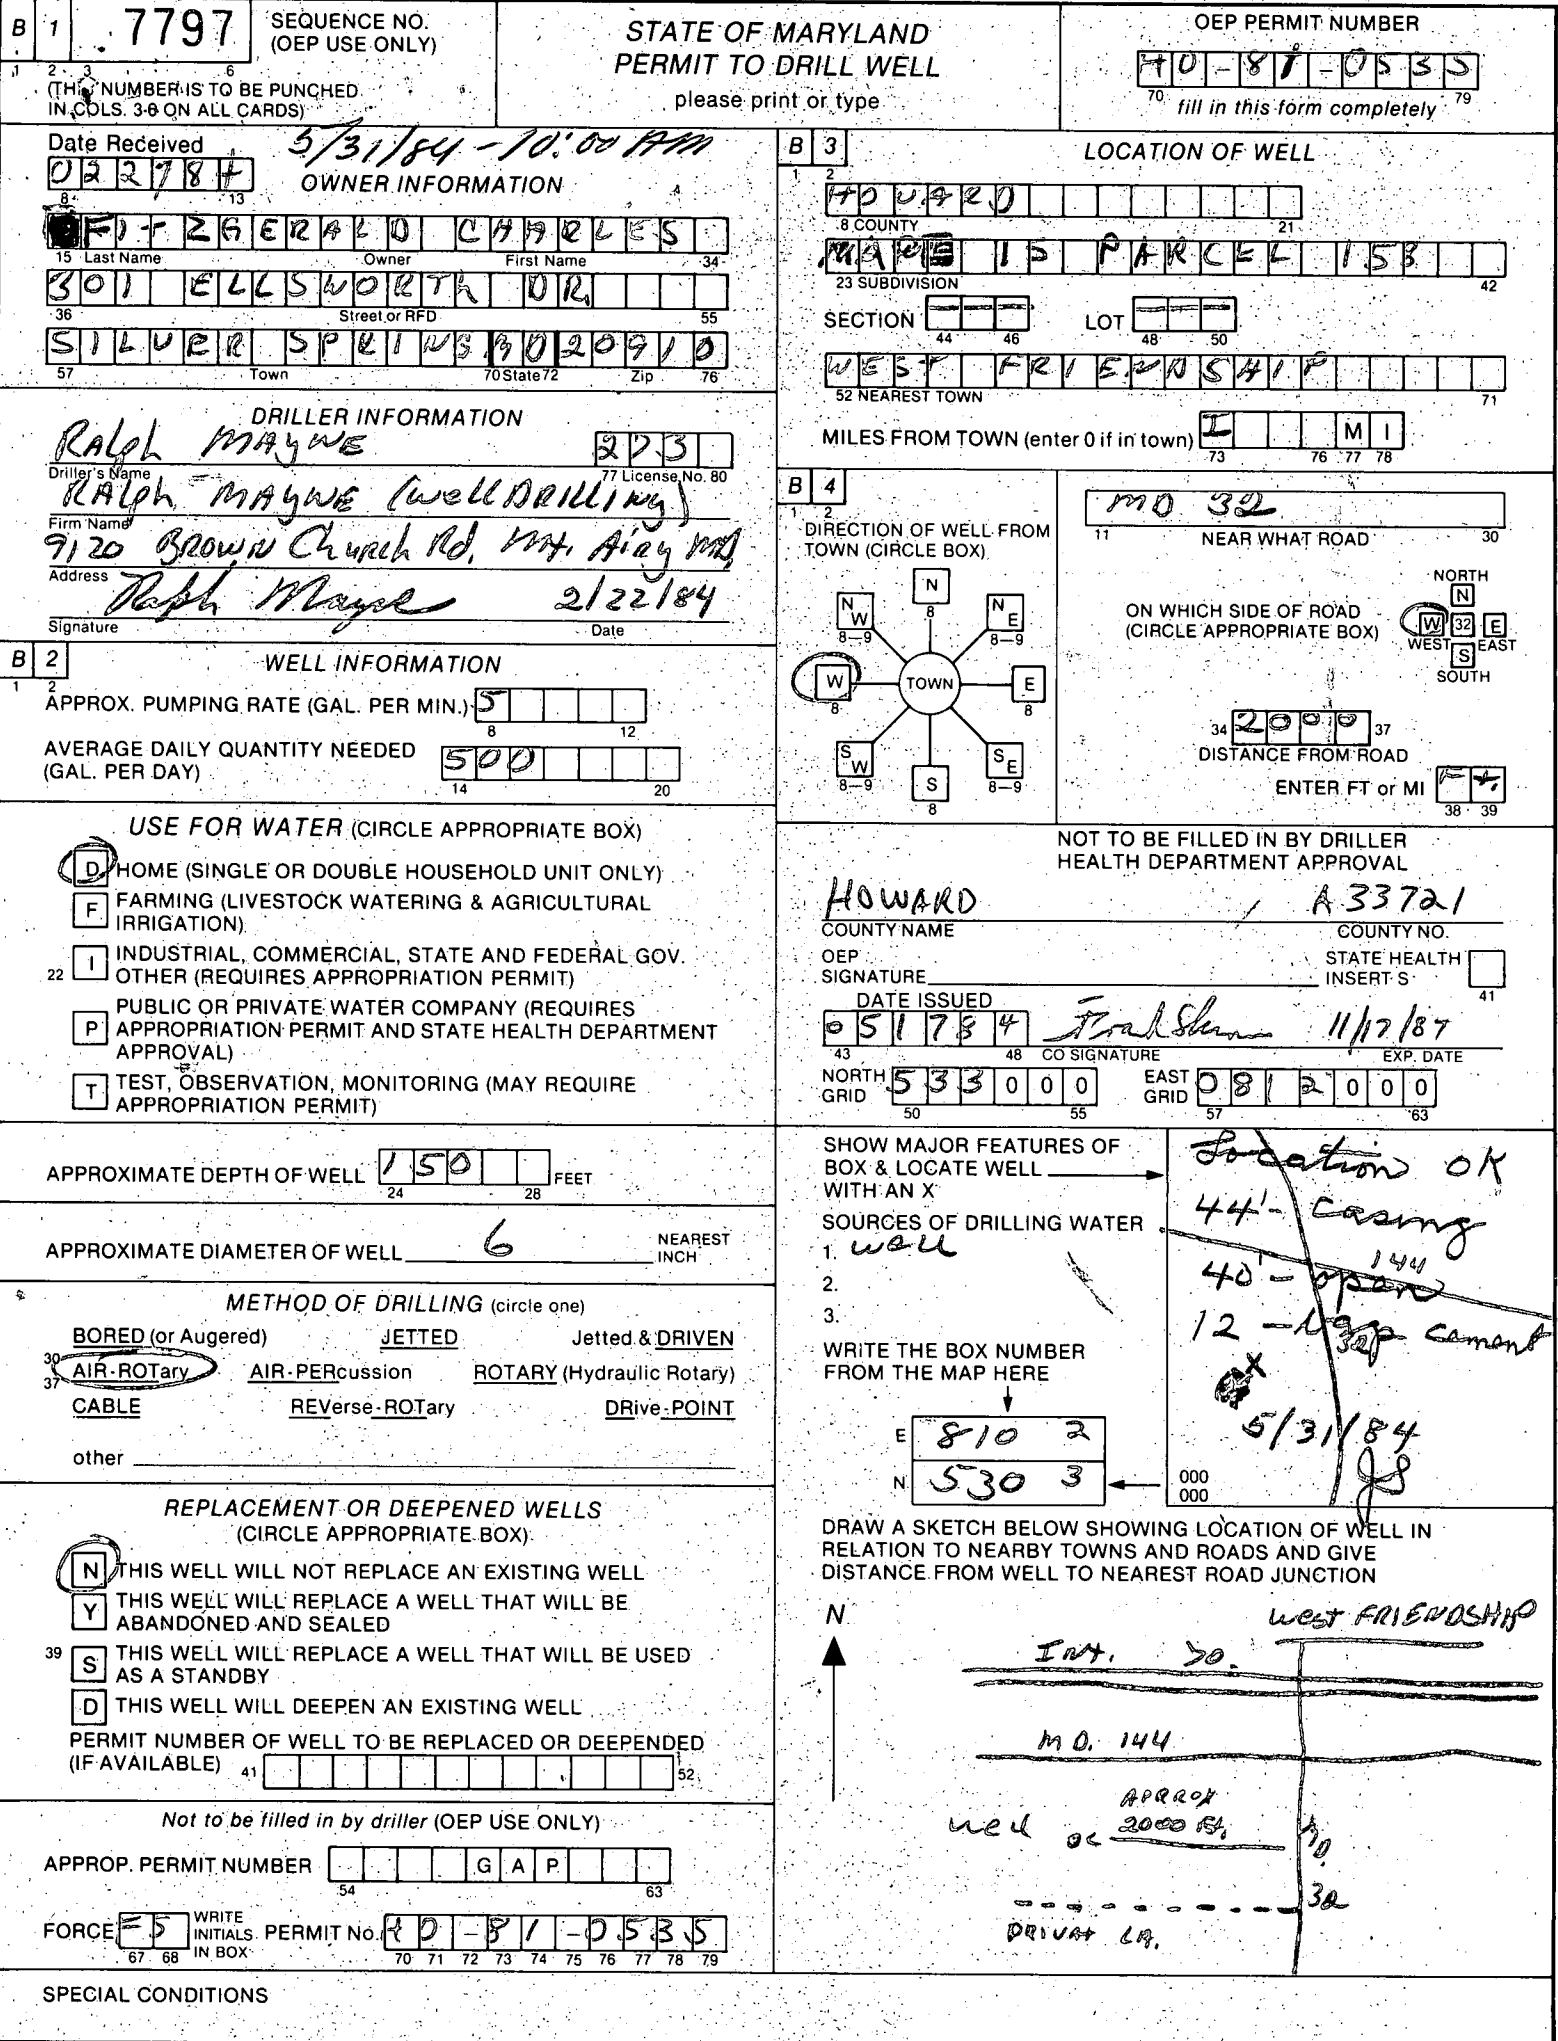 B 1 7797 SEQUENCE NO. (OEP USE ONLY)
1 2 3 6
(THIS NUMBER IS TO BE PUNCHED
IN COLS. 3-6 ON ALL CARDS)
STATE OF MARYLAND
PERMIT TO DRILL WELL
please print or type
OEP PERMIT NUMBER
HO-81-0535
70 fill in this form completely 79
Date Received 5/31/84 - 10:00 AM
022784
8 13
OWNER INFORMATION
FITZGERALD CHARLES
15 Last Name Owner First Name 34
301 ELLSWORTH DR.
36 Street or RFD 55
SILVER SPRING 20910
57 Town 70 State 72 Zip 76
DRILLER INFORMATION
RALPH MAYNE 273
Driller's Name 77 License No. 80
RALPH MAYNE (WELL DRILLING)
Firm Name
9120 BROWN Church Rd. Mt. Airy MD.
Address
Ralph Mayne 2/22/84
Signature Date
B 2 WELL INFORMATION
1 2
APPROX. PUMPING RATE (GAL. PER MIN.) 5
8 12
AVERAGE DAILY QUANTITY NEEDED
(GAL. PER DAY) 500
14 20
USE FOR WATER (CIRCLE APPROPRIATE BOX)
D HOME (SINGLE OR DOUBLE HOUSEHOLD UNIT ONLY)
F FARMING (LIVESTOCK WATERING & AGRICULTURAL
IRRIGATION)
22 I INDUSTRIAL, COMMERCIAL, STATE AND FEDERAL GOV.
OTHER (REQUIRES APPROPRIATION PERMIT)
P PUBLIC OR PRIVATE WATER COMPANY (REQUIRES
APPROPRIATION PERMIT AND STATE HEALTH DEPARTMENT
APPROVAL)
T TEST, OBSERVATION, MONITORING (MAY REQUIRE
APPROPRIATION PERMIT)
APPROXIMATE DEPTH OF WELL 150 FEET
24 28
APPROXIMATE DIAMETER OF WELL 6 NEAREST
INCH
METHOD OF DRILLING (circle one)
BORED (or Augered) JETTED Jetted & DRIVEN
30 AIR-ROTary AIR-PERcussion ROTARY (Hydraulic Rotary)
37
CABLE REVerse-ROTary DRive-POINT
other
REPLACEMENT OR DEEPENED WELLS
(CIRCLE APPROPRIATE BOX)
N THIS WELL WILL NOT REPLACE AN EXISTING WELL
Y THIS WELL WILL REPLACE A WELL THAT WILL BE
ABANDONED AND SEALED
39 S THIS WELL WILL REPLACE A WELL THAT WILL BE USED
AS A STANDBY
D THIS WELL WILL DEEPEN AN EXISTING WELL
PERMIT NUMBER OF WELL TO BE REPLACED OR DEEPENED
(IF AVAILABLE) 41 52
Not to be filled in by driller (OEP USE ONLY)
APPROP. PERMIT NUMBER G A P
54 63
FORCE FS WRITE INITIALS IN BOX PERMIT No. HO-81-0535
67 68 70 71 72 73 74 75 76 77 78 79
SPECIAL CONDITIONS
B 3 LOCATION OF WELL
1 2
HOWARD
8 COUNTY 21
15 PARCEL 153
23 SUBDIVISION 42
SECTION --- LOT ---
44 46 48 50
WEST FRIENDSHIP
52 NEAREST TOWN 71
MILES FROM TOWN (enter 0 if in town) I M I
73 76 77 78
B 4
1 2
DIRECTION OF WELL FROM
TOWN (CIRCLE BOX)
N
8
NW NE
8-9 8-9
W TOWN E
8 8
SW SE
8-9 8-9
S
8
MD 32
11 NEAR WHAT ROAD 30
ON WHICH SIDE OF ROAD
(CIRCLE APPROPRIATE BOX)
NORTH
N
W 32 E
WEST EAST
S
SOUTH
34 2000 37
DISTANCE FROM ROAD
ENTER FT or MI Ft.
38 39
NOT TO BE FILLED IN BY DRILLER
HEALTH DEPARTMENT APPROVAL
HOWARD A 33721
COUNTY NAME COUNTY NO.
OEP
SIGNATURE STATE HEALTH
INSERT S
41
DATE ISSUED
051784 11/17/87
43 48 CO SIGNATURE EXP. DATE
NORTH GRID 533000 EAST GRID 0812000
50 55 57 63
SHOW MAJOR FEATURES OF
BOX & LOCATE WELL
WITH AN X
SOURCES OF DRILLING WATER
1. well
2.
3.
WRITE THE BOX NUMBER
FROM THE MAP HERE
E 810 2
N 530 3
000
000
Location OK
44' - casing
144
40' - open
12 - bags cement
32
X
5/31/84
JS
DRAW A SKETCH BELOW SHOWING LOCATION OF WELL IN
RELATION TO NEARBY TOWNS AND ROADS AND GIVE
DISTANCE FROM WELL TO NEAREST ROAD JUNCTION
N
West FRIENDSHIP
INT. 70.
MD. 144
APPROX
2000 Ft.
well
MD.
32
PRIVAT LA.